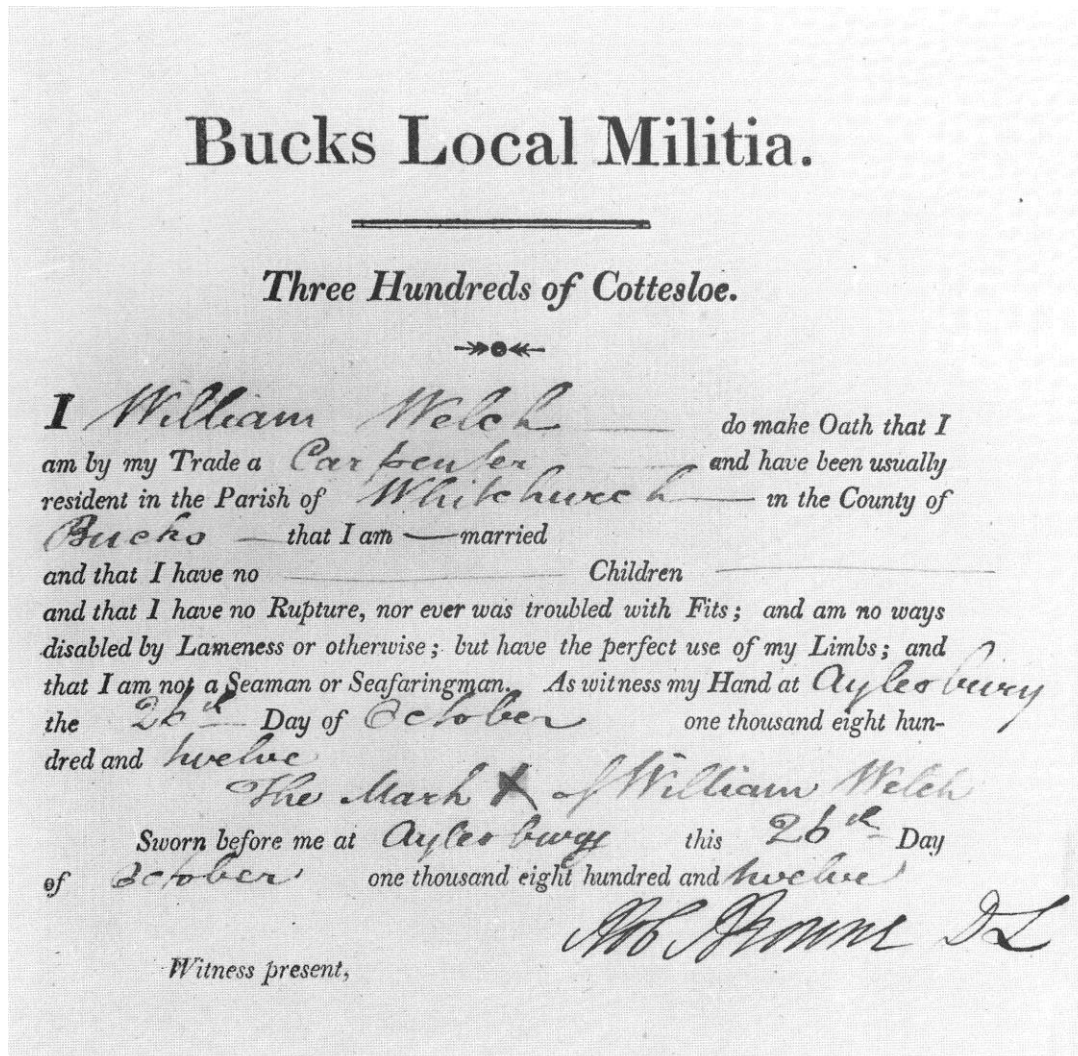 Bucks Local Militia.
Three Hundreds of Cottesloe.
I William Welch do make Oath that I
am by my Trade a Carpenter and have been usually
resident in the Parish of Whitchurch in the County of
Bucks that I am married
and that I have no Children
and that I have no Rupture, nor ever was troubled with Fits; and am no ways
disabled by Lameness or otherwise; but have the perfect use of my Limbs; and
that I am not a Seaman or Seafaringman. As witness my Hand at Aylesbury
the 26th Day of October one thousand eight hun-
dred and twelve
The Mark X of William Welch
Sworn before me at Aylesbury this 26th Day
of October one thousand eight hundred and twelve
Rob Browne DL
Witness present,